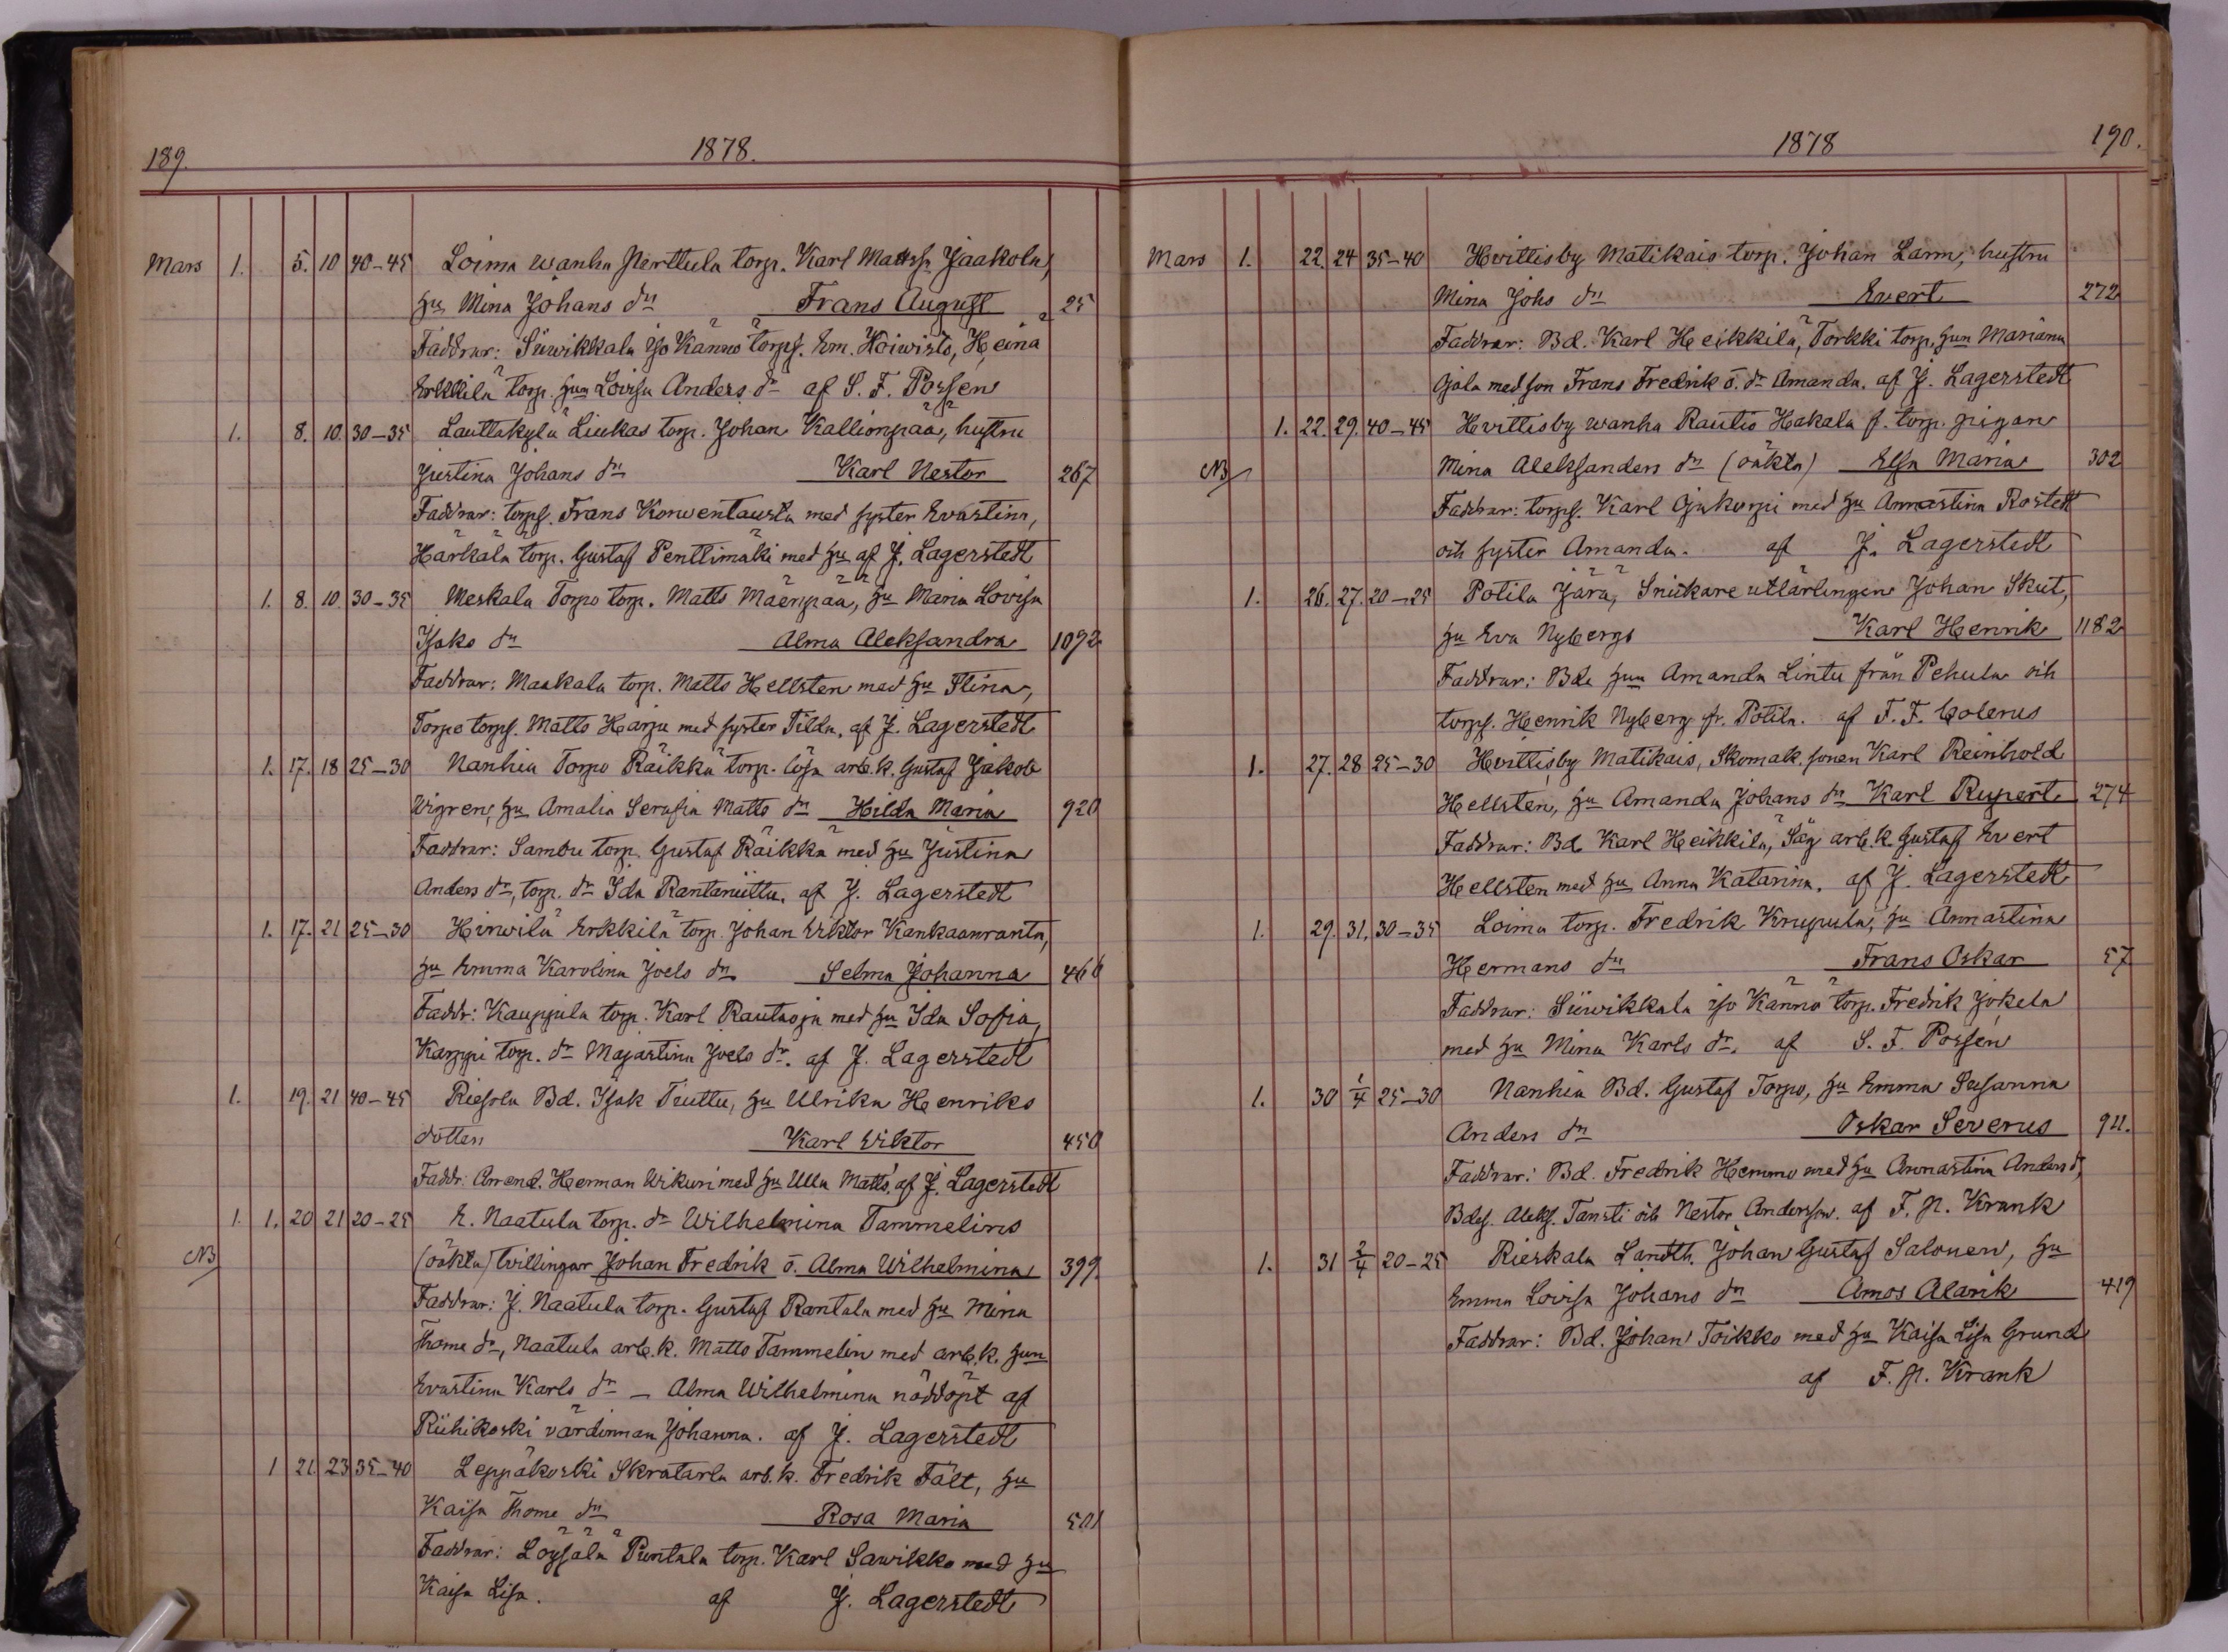 189. 1878.
Mars 1. 5. 10 40-45 Loima wanha Perttula torp. Karl Mattss. Jaakola,
hu Mina Johans dr Frans August 25
Faddrar: Siiwikkala Iso Kännö torps. Em. Koiwisto, Heinä
Erkkilä torp. hun Lovisa Anders dr af S. F. Porsen
1. 8. 10. 30-35 Lauttakylä Liukas torp. Johan Kallionpää, hustru
Justina Johans dr Karl Nestor 267
Faddrar: torps. Frans Korwentausta med syster Evastina,
Härkälä torp. Gustaf Penttimäki med hu af J. Lagerstedt
1. 8. 10. 30-35 Meskala Torpo torp. Matts Mäenpää, hu Maria Lovisa
Isaks dr Alma Aleksandra 1092
Faddrar: Maakala torp. Matts Hellsten med hu Stina,
Torpo torps. Matts Harju med syster Tilda. af J. Lagerstedt
1. 17. 18 25-30 Nanhia Torpo Räikkä torp. lösa arb.k. Gustaf Jakob
Wigren, hu Amalia Serafia Matts dr Hilda Maria 920
Faddrar: Sambu torp. Gustaf Räikkä med hu Justina
Anders dr, torp. dr Ida Rantaniittu. af J. Lagerstedt
1. 17. 21 25-30 Hirwilä Erkkilä torp. Johan Viktor Kankaanranta,
hu Emma Karolina Joels dr Selma Johanna 466
Faddr: Kauppila torp. Karl Rautaoja med hu Ida Sofia,
Karppi torp. dr Majastina Joels dr. af J. Lagerstedt
1. 19. 21 40-45 Riesola Bd. Isak Tuuttu, hu Ulrika Henriks
dotter Karl Viktor 450
Faddr: Arrend. Herman Wikuri med hu Ulla Matts. af J. Lagerstedt
1. 1. 20 21 20-25 E. Naatula torp. dr Wilhelmina Tammelins
NB (oäkta) tvillingar Johan Fredrik o. Alma Wilhelmina 399.
Faddrar: J. Naatula torp. Gustaf Rantala med hu Mina
Thome dr, Naatula arb.k. Matts Tammelin med arb.k. hun
Evastina Karls dr - Alma Wilhelmina nöddöpt af
Riihikoski värdinnan Johanna. af J. Lagerstedt
1 21. 23 35-40 Leppäkoski Skratarla arb.k. Fredrik Fält, hu
Kaisa Thome dr Rosa Maria 501
Faddrar: Löysälä Puntala torp. Karl Sawikko med hu
Kaisa Lisa. af J. Lagerstedt
1878 190.
Mars 1. 22. 24 35-40 Hvittisby Mätikais torp. Johan Larm, hustru
Mina Johs dr Evert 272
Faddrar: Bd. Karl Heikkilä, Torkki torp. hun Mariana
Ojala med son Frans Fredrik o. dr Amanda. af J. Lagerstedt
1. 22. 29. 40-45 Hvittisby wanha Rautio Hakala f. torp. pigan
NB Mina Aleksanders dr (oäkta) Elsa Maria 302
Faddrar: torps. Karl Ojakorpi med hu Annastina Rostedt
och syster Amanda. af J. Lagerstedt
1. 26. 27. 20-25 Potila Järä, Snickare utlärlingen Johan Skut,
hu Eva Nybergs Karl Henrik 1182
Faddrar: Bde hun Amanda Lintu från Pehula och
torps. Henrik Nyberg fr. Potila. af F. F. Colerus
1. 27. 28 25-30 Hvittisby Mätikais, Skomak. sonen Karl Reinhold
Hellsten, hu Amanda Johans dr Karl Rupert 274
Faddrar: Bd Karl Heikkilä, Säg arb.k. Gustaf Evert
Hellsten med hu Anna Katarina. af J. Lagerstedt
1. 29. 31. 30-35 Loima torp. Fredrik Krupula, hu Annastina
Hermans dr Frans Oskar 57
Faddrar: Siiwikkala iso Kännö torp. Fredrik Jokela
med hu Mina Karls dr. af S. F. Porsén
1. 30 1/4 25-30 Nanhia Bd. Gustaf Torpo, hu Emma Susanna
Anders dr Oskar Severus 911.
Faddrar: Bd. Fredrik Hemmo med hu Annastina Anders d,
Bdes. Aleks. Tansti och Nestor Andersson. af F. P. Krank
1. 31 2/4 20-25 Rieskala Landth. Johan Gustaf Salonen, hu
Emma Lovisa Johans dr Amos Alarik 419
Faddrar: Bd. Johan Toikko med hu Kaisa Lisa Grund
af F. P. Krank